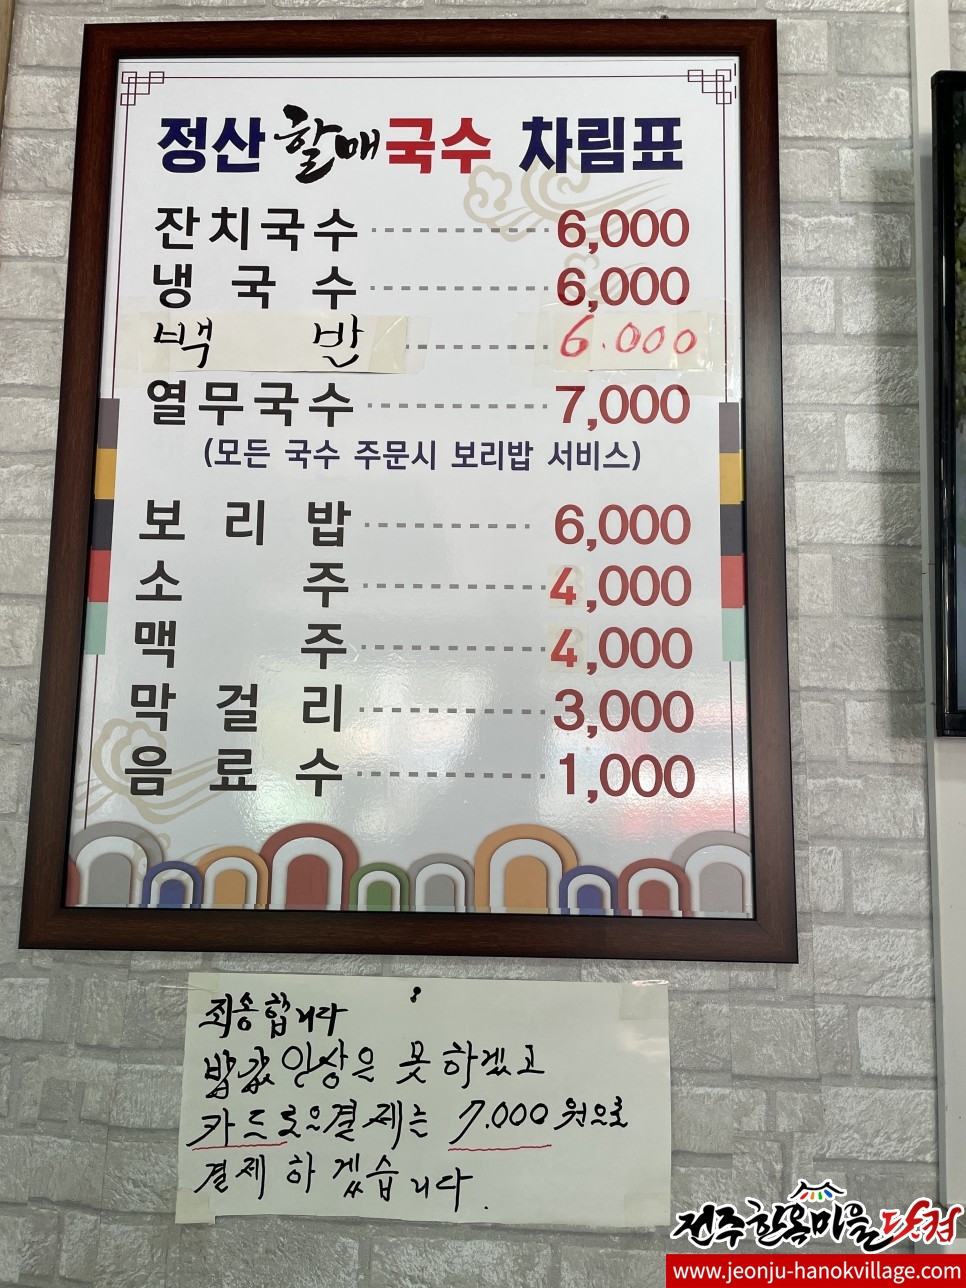 정산할매국수 차림표
잔치국수 6,000
냉국수 6,000
백반 6.000
열무국수 7,000
(모든 국수 주문시 보리밥 서비스)
보리밥 6,000
소주 4,000
맥주 4,000
막걸리 3,000
음료수 1,000
죄송합니다
밥값 인상은 못하겠고
카드로은결제는 7.000원으로
결제하겠습니다.
전주한옥마을닷컴
www.jeonju-hanokvillage.com